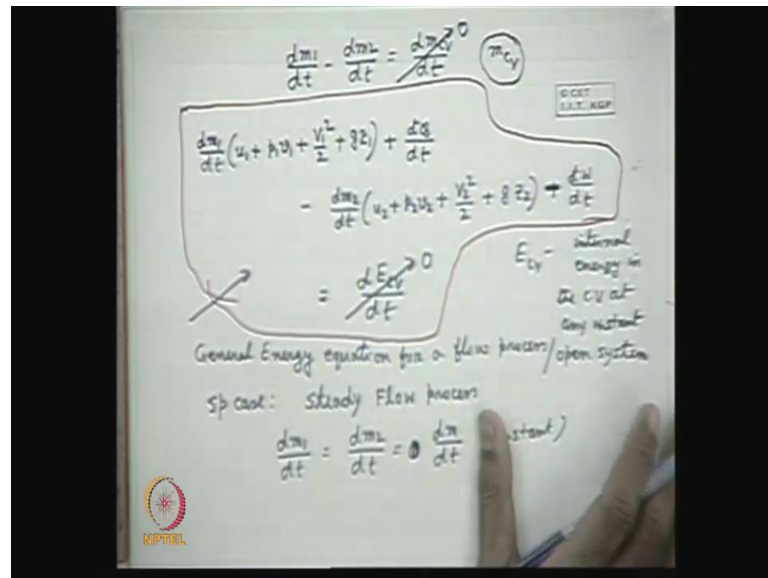 dm1/dt - dm2/dt = dmcv/dt 0 mcv
© CET
I.I.T. KGP
dm1/dt (u1 + p1v1 + V1²/2 + gz1) + đQ/dt
- dm2/dt (u2 + p2v2 + V2²/2 + gz2) - đW/dt
= dEcv/dt 0
Ecv - internal
energy in
the CV at
any instant
General Energy equation for a flow process/open system
sp case: Steady Flow process
dm1/dt = dm2/dt = dm/dt stant)
NPTEL